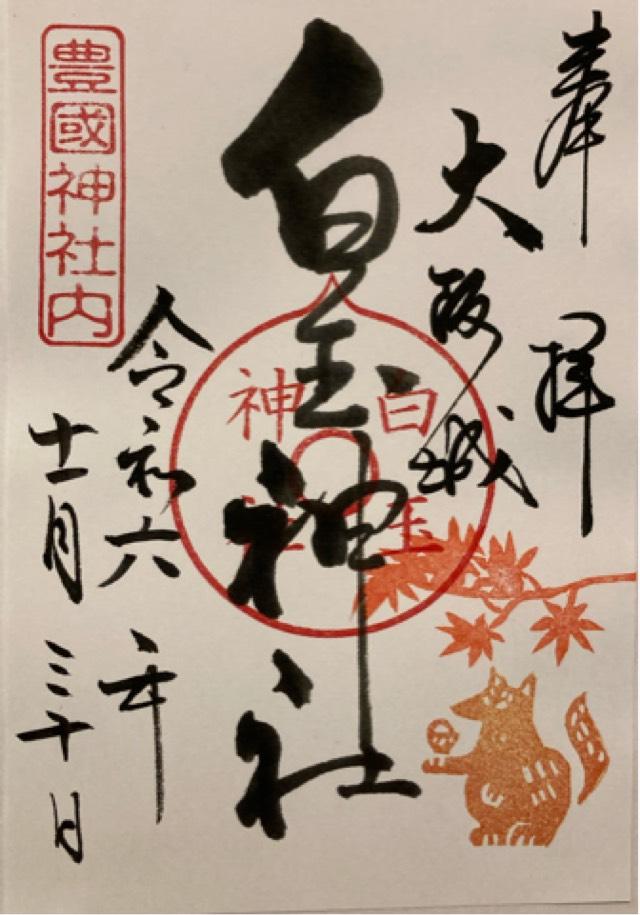 奉拝
大阪城
白玉神社
白玉神社
令和六年
十一月三十日
豊國神社内